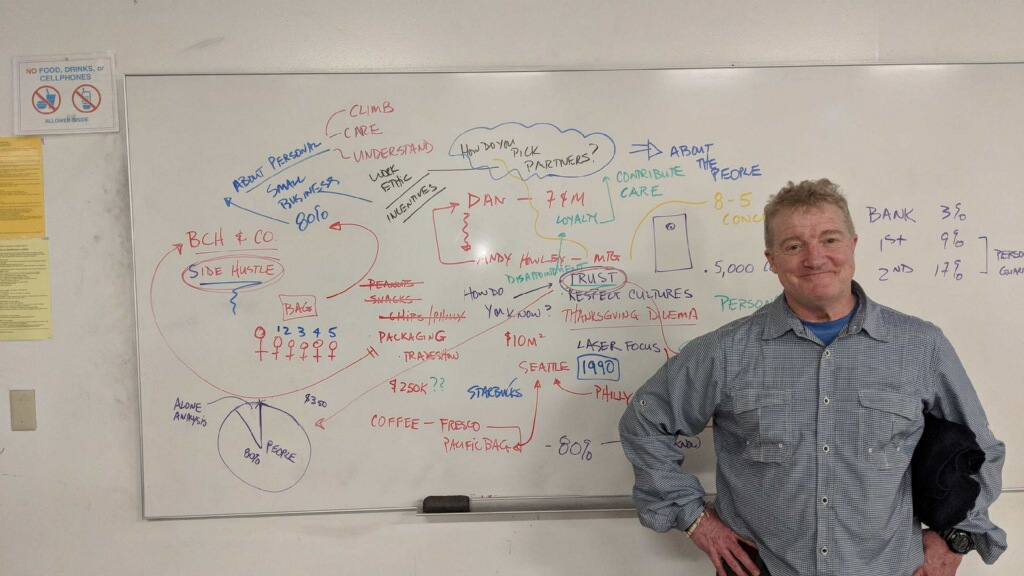 NO FOOD, DRINKS, or
CELLPHONES
ALLOWED INSIDE
CLIMB
CARE
UNDERSTAND
ABOUT PERSONAL
SMALL
BUSINESS
80%
WORK
ETHIC
INCENTIVES
HOW DO YOU
PICK
PARTNERS?
ABOUT
THE
PEOPLE
CONTRIBUTE
CARE
DAN - 7
LOYALTY
8-5
BCH & CO
SIDE HUSTLE
BAGS
1 2 3 4 5
- MTG
TRUST
HOW DO
YOU KNOW?
RESPECT CULTURES
THANKSGIVING DILEMA
5,000
PERSON
PEANUTS
SNACKS
CHIPS/PHILLY
PACKAGING
TRADESHOW
$10M
LASER FOCUS
SEATTLE
1990
PHILLY
$250K??
STARBUCKS
COFFEE - FRESCO
PACIFIC BAG
-80%
KNOW
ALONE
ANALYSIS
$350
80%
PEOPLE
BANK 3%
1ST 9%
2ND 17%